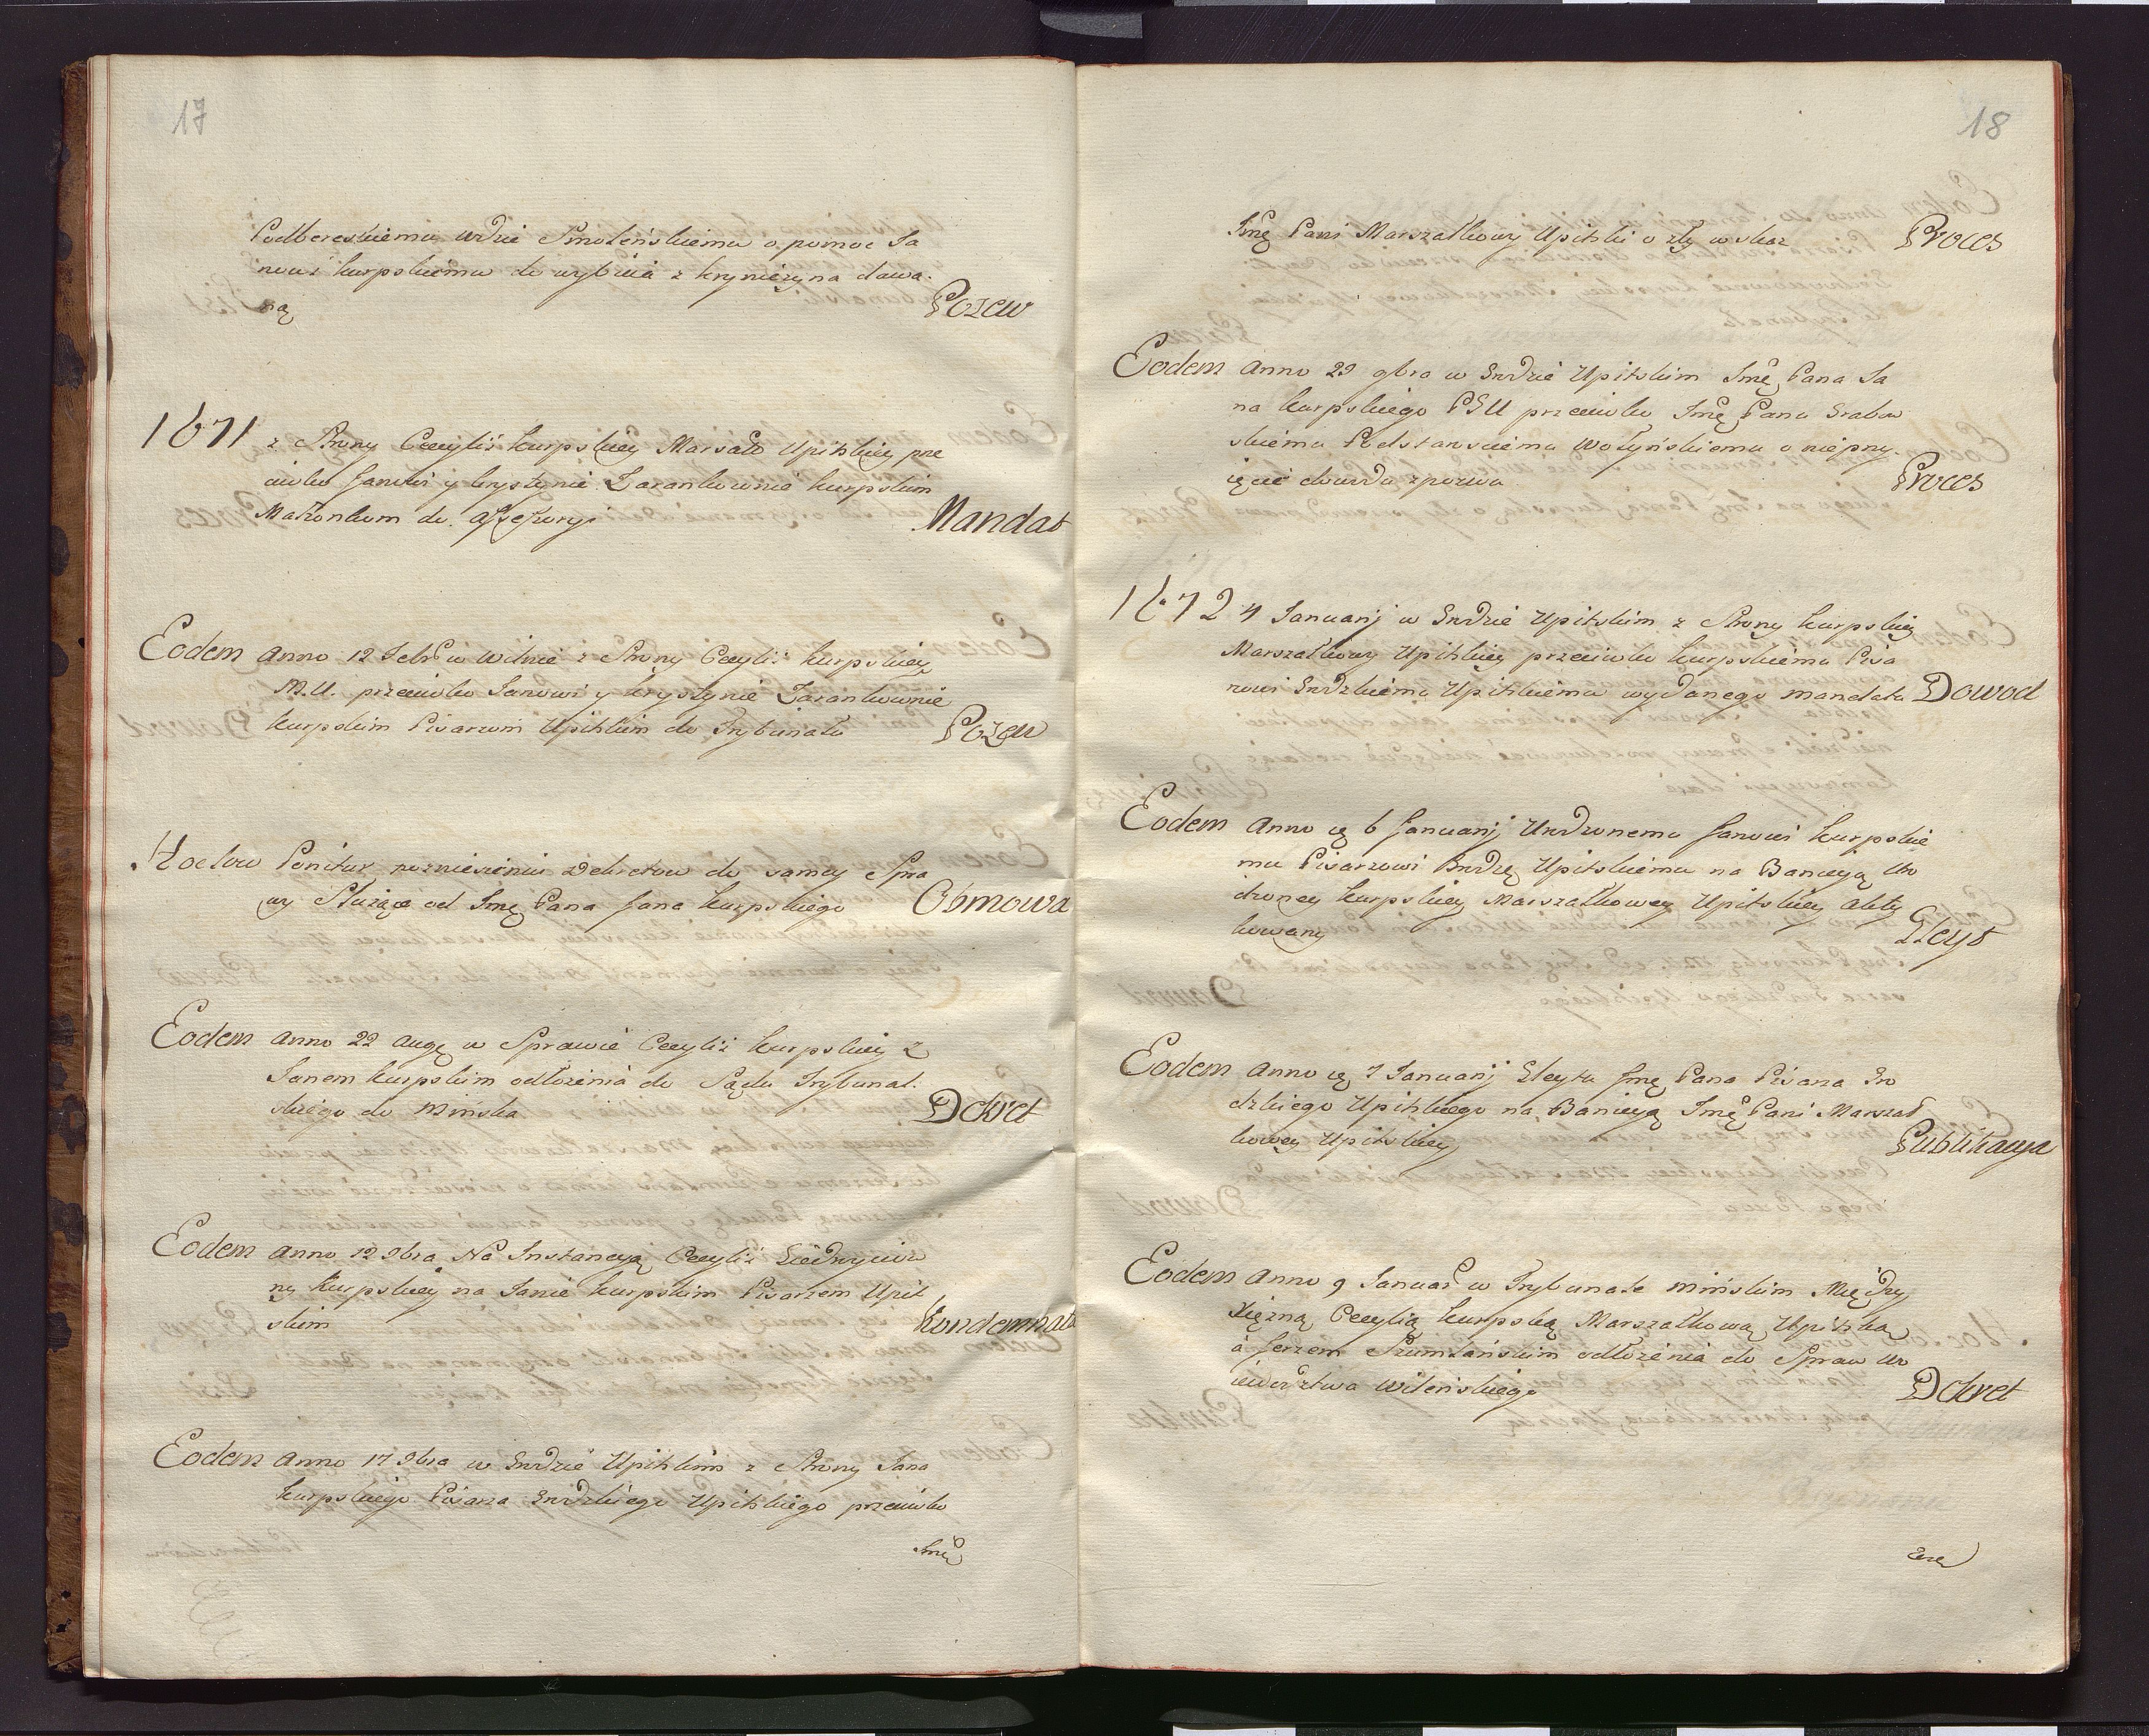 17
Podbereskiemu Wdzie Smoleńskiemu o pomoc Ja
nowi Kurpskiemu do wybicia z Kryniczyna dawa-
ną Pozew
1671 z Strony Cecylii Kurpskiey Marsałk Upitskiey prze
ciwko Janowi y Krystynie Tarankownie Kurpskim
Małżonkom do Assessoryi Mandat
Eodem anno 12 Febr w Wilnie z Strony Cecylii Kurpskiey
M.U. przeciwko Janowi y Krystynie Tarankownie
Kurpskim Pisarzom Upitskim do Trybunału Pozew
Hoc loco Ponitur poznieszenie Dekretow do samey Spra
wy Służące od Jmę Pana Jana Kurpskiego Obmowa
Eodem anno 22 Augę w Sprawie Cecylii Kurpskiey z
Janem Kurpskim odłożenia do Sądu Trybunal-
skiego do Mińska Dekret
Eodem anno 12 9bra Na Instancyą Cecylii
ny Kurpskiey na Janie Kurpskim Pisarzem Upit
skim Kondemnata
Eodem anno 17 9bra w Grodzie Upitskim z Strony Jana
Kurpskiego Pisarza Grodzkiego Upitskiego przeciwko
Jmę
18
Jmę Pani Marszałkowy Upitski o zły wskaz Proces
Eodem anno 29 9bra w Grodzie Upitskim Jmę Pana Ja
na Kurpskiego PGU przeciwko Jmę Panu Grabow
skiemu Podstarosciemu Wołyńskiemu o nieprzy-
ięcie dowodu z pozwu Proces
1672 4 Januarij w Grodzie Upitskim z Strony Kurpskiey
Marszałkowy Upitskiey przeciwko Kurpskiemu Pisa
rowi Grodzkiemu Upitskiemu wydanego mandatu Dowod
Eodem anno ię 6 Januarij Urodzonemu Janowi Kurpskie
mu Pisarzowi Grodzę Upitskiemu na Banicyą Uro
dzoney Kurpskiey Marszałkowey Upitskiey
kowany Gleyt
Eodem anno ię 7 Januarij Gleytu Jmę Pana Pisarza Gro
dzkiego Upitskiego na Banicyą Jmę Pani Marszał
kowey Upitskiey Publikacya
Eodem anno 9 Januar w Trybunale Mińskim Między
Xiężną Cecylią Kurpską Marszałkową Upitską
a Jerzem Szumlańskim odłożenia do Spraw Wo
iewodztwa Wileńskiego Dekret